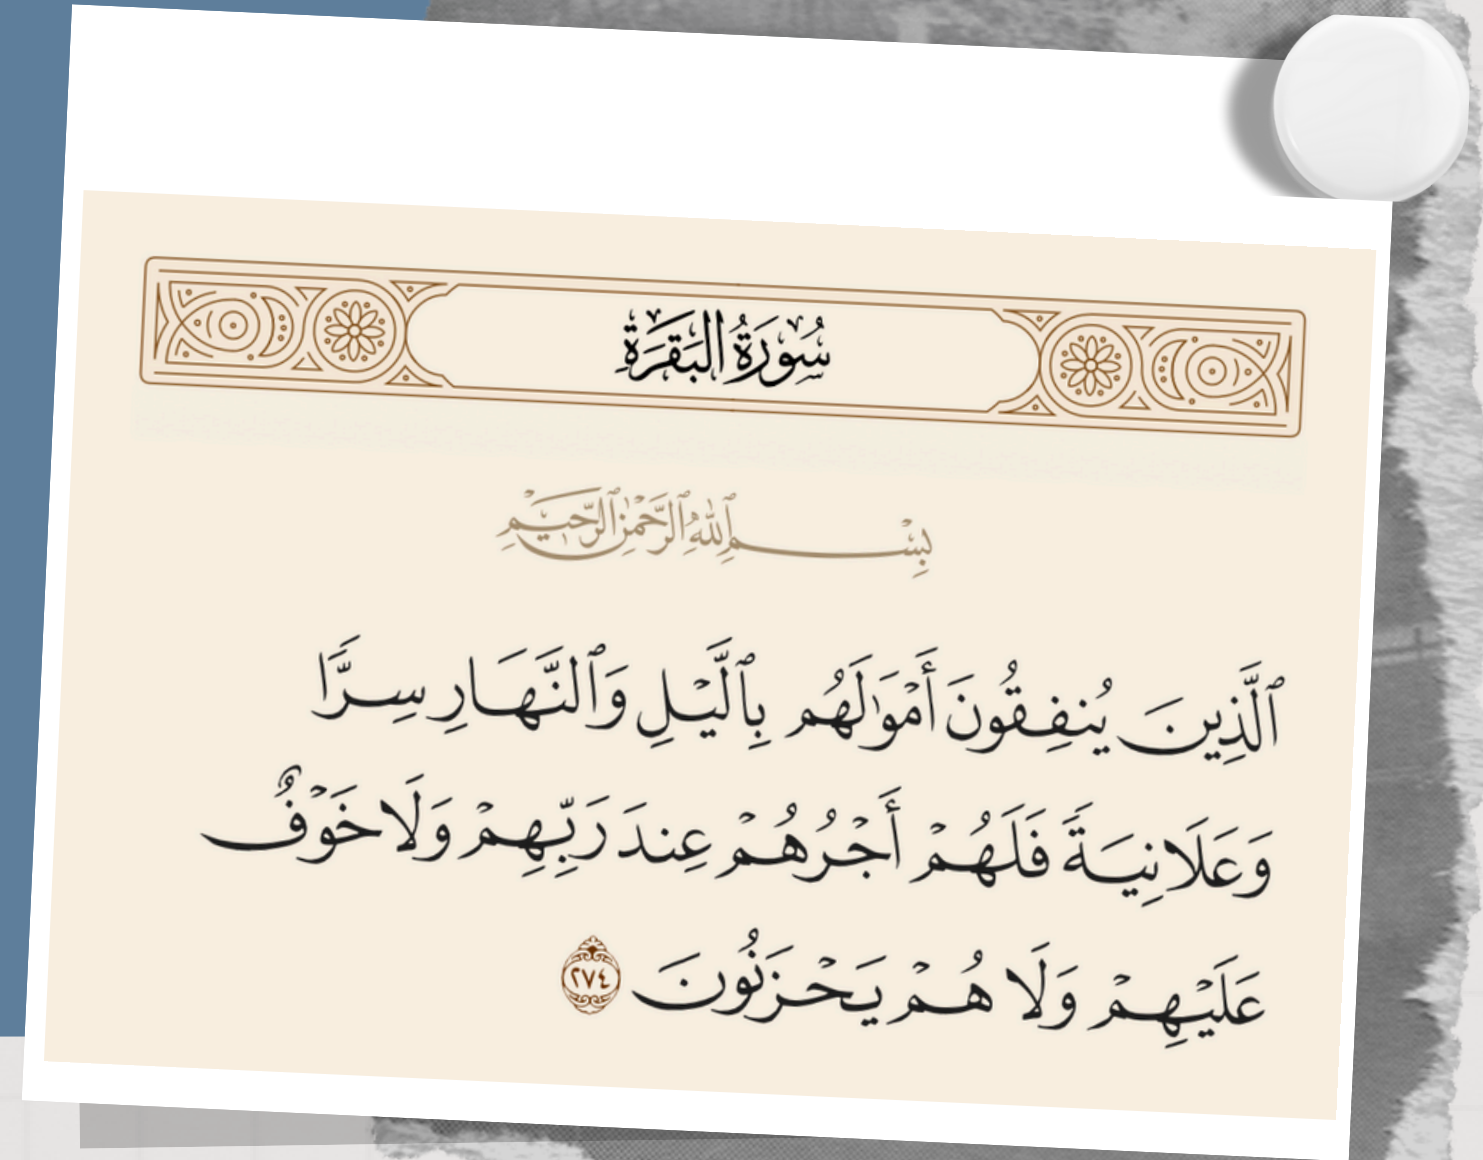 سُورَةُ البَقَرَةِ
بِسْمِ ٱللَّهِ ٱلرَّحْمَٰنِ ٱلرَّحِيمِ
ٱلَّذِينَ يُنفِقُونَ أَمْوَٰلَهُم بِٱلَّيْلِ وَٱلنَّهَارِ سِرًّا
وَعَلَانِيَةً فَلَهُمْ أَجْرُهُمْ عِندَ رَبِّهِمْ وَلَا خَوْفٌ
عَلَيْهِمْ وَلَا هُمْ يَحْزَنُونَ ٢٧٤